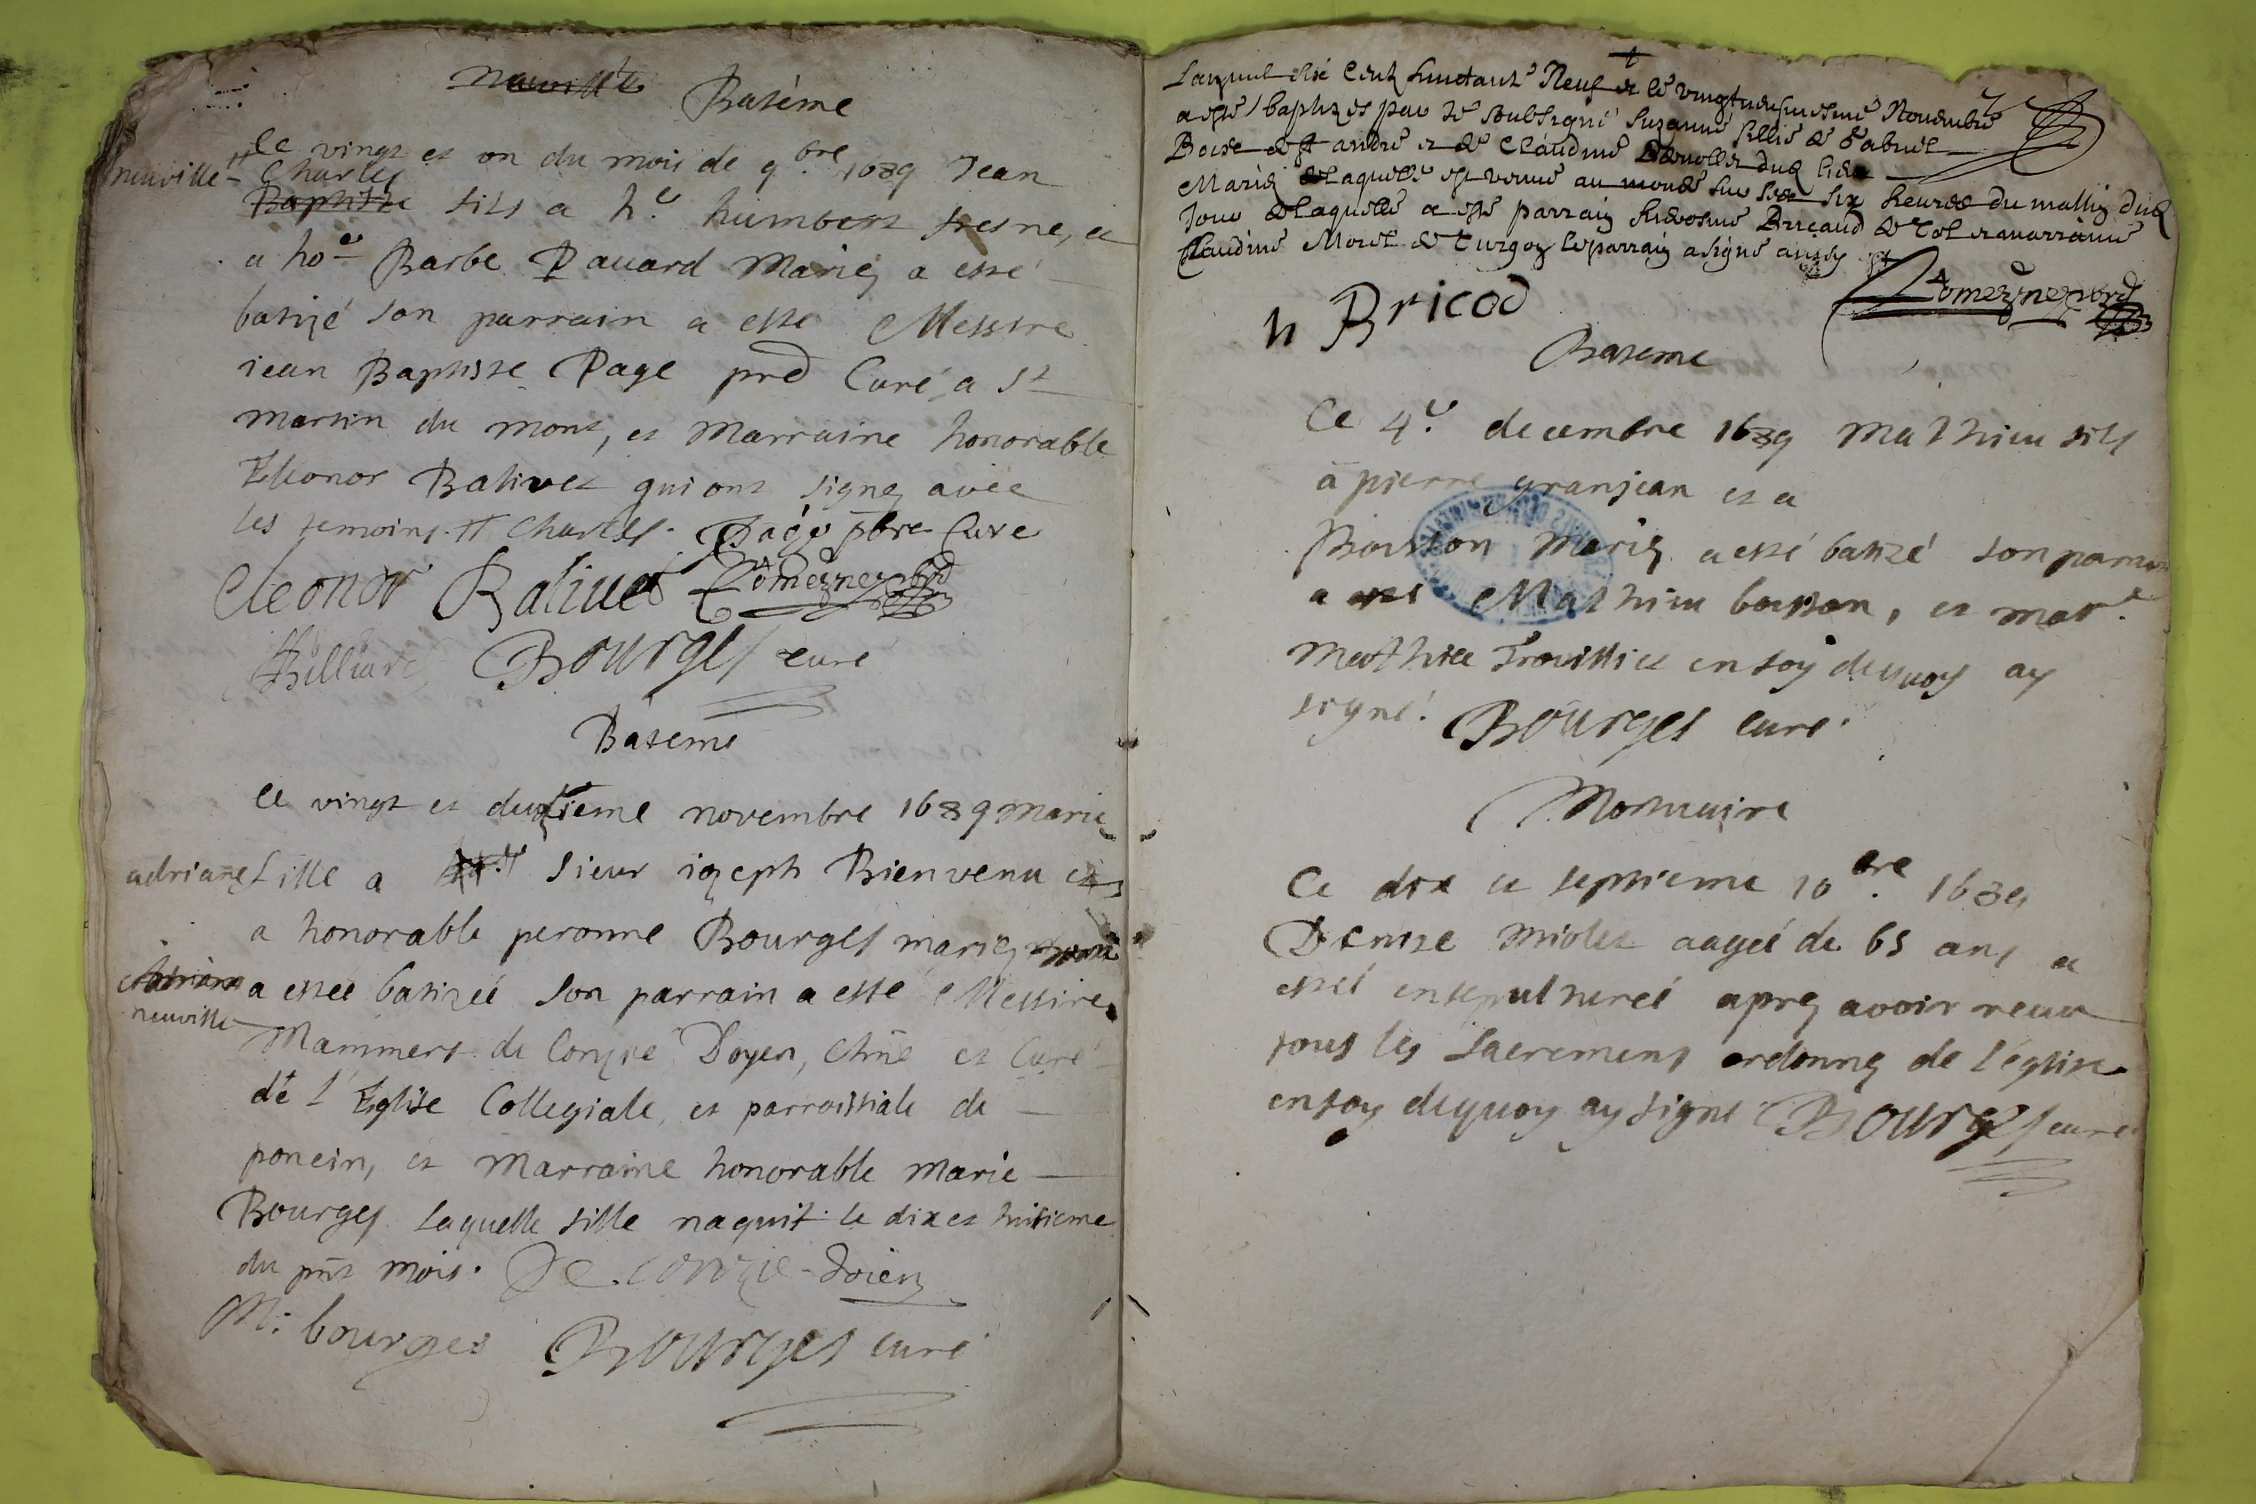 Batéme
neuville
Ce vingt et on du mois de 9.bre 1689 Jean
Charles
Baptiste fils a h.e humbert fresne, et
a ho.e Barbe Pauard Mariez a esté
batizé son parrain a esté Messire
iean Baptiste Page pred Curé a St
martin du mont, et Marraine honorable
Eleonor Balivet qui ont signez avec
les temoins. Charles. Page pbre Cure
Eleonor Baliuet
Billiard Bourges curé
Bateme
Ce vingt et deuzieme novembre 1689 marie
adriane fille a sieur iozeph Bienvenu et
a honorable peronne Bourges mariez
a esteé batizeé son parrain a esté Messire
neuville
Mammert de Conzie Doyen, Chne et Curé
de l'Eglise Collegiale et parroissiale de
poncin, et Marraine honorable Marie
Bourges laquelle fille naquit le dix et huitieme
du pnt mois. De Conzie doien
M: bourges Bourges curé
L'an mil six Cent huictante Neuf et le vingtneufuiesme Novembre
a esté baptizee par Je soubsigné Suzanne fillie de Gabriel
André et de Claudine dud lieu
Mariez laquelle est venue au monde sur les six heures du mattin dud
Jour de laquelle a esté parrain Hierosme Bricaud de Tol et marrainne
Claudine Morel de Turgon le parrain a signé aussy
h Bricod
Bateme
Ce 4.e decembre 1689 Mathieu fils
a pierre granjean et a
Boisson Mariez a esté batizé son parrain
a esté Mathieu boisson, et mar.e
Mathiee Trouilliet en foy dequoy ay
signé. Bourges curé.
Mortuaire
Ce dix et septieme 10.bre 1689
Denise Miolet aageé de 65 ans a
esté ensepultureé aprez avoir receu
tous les Sacremens ordonnez de l'église
en foy dequoy ay signé Bourges curé